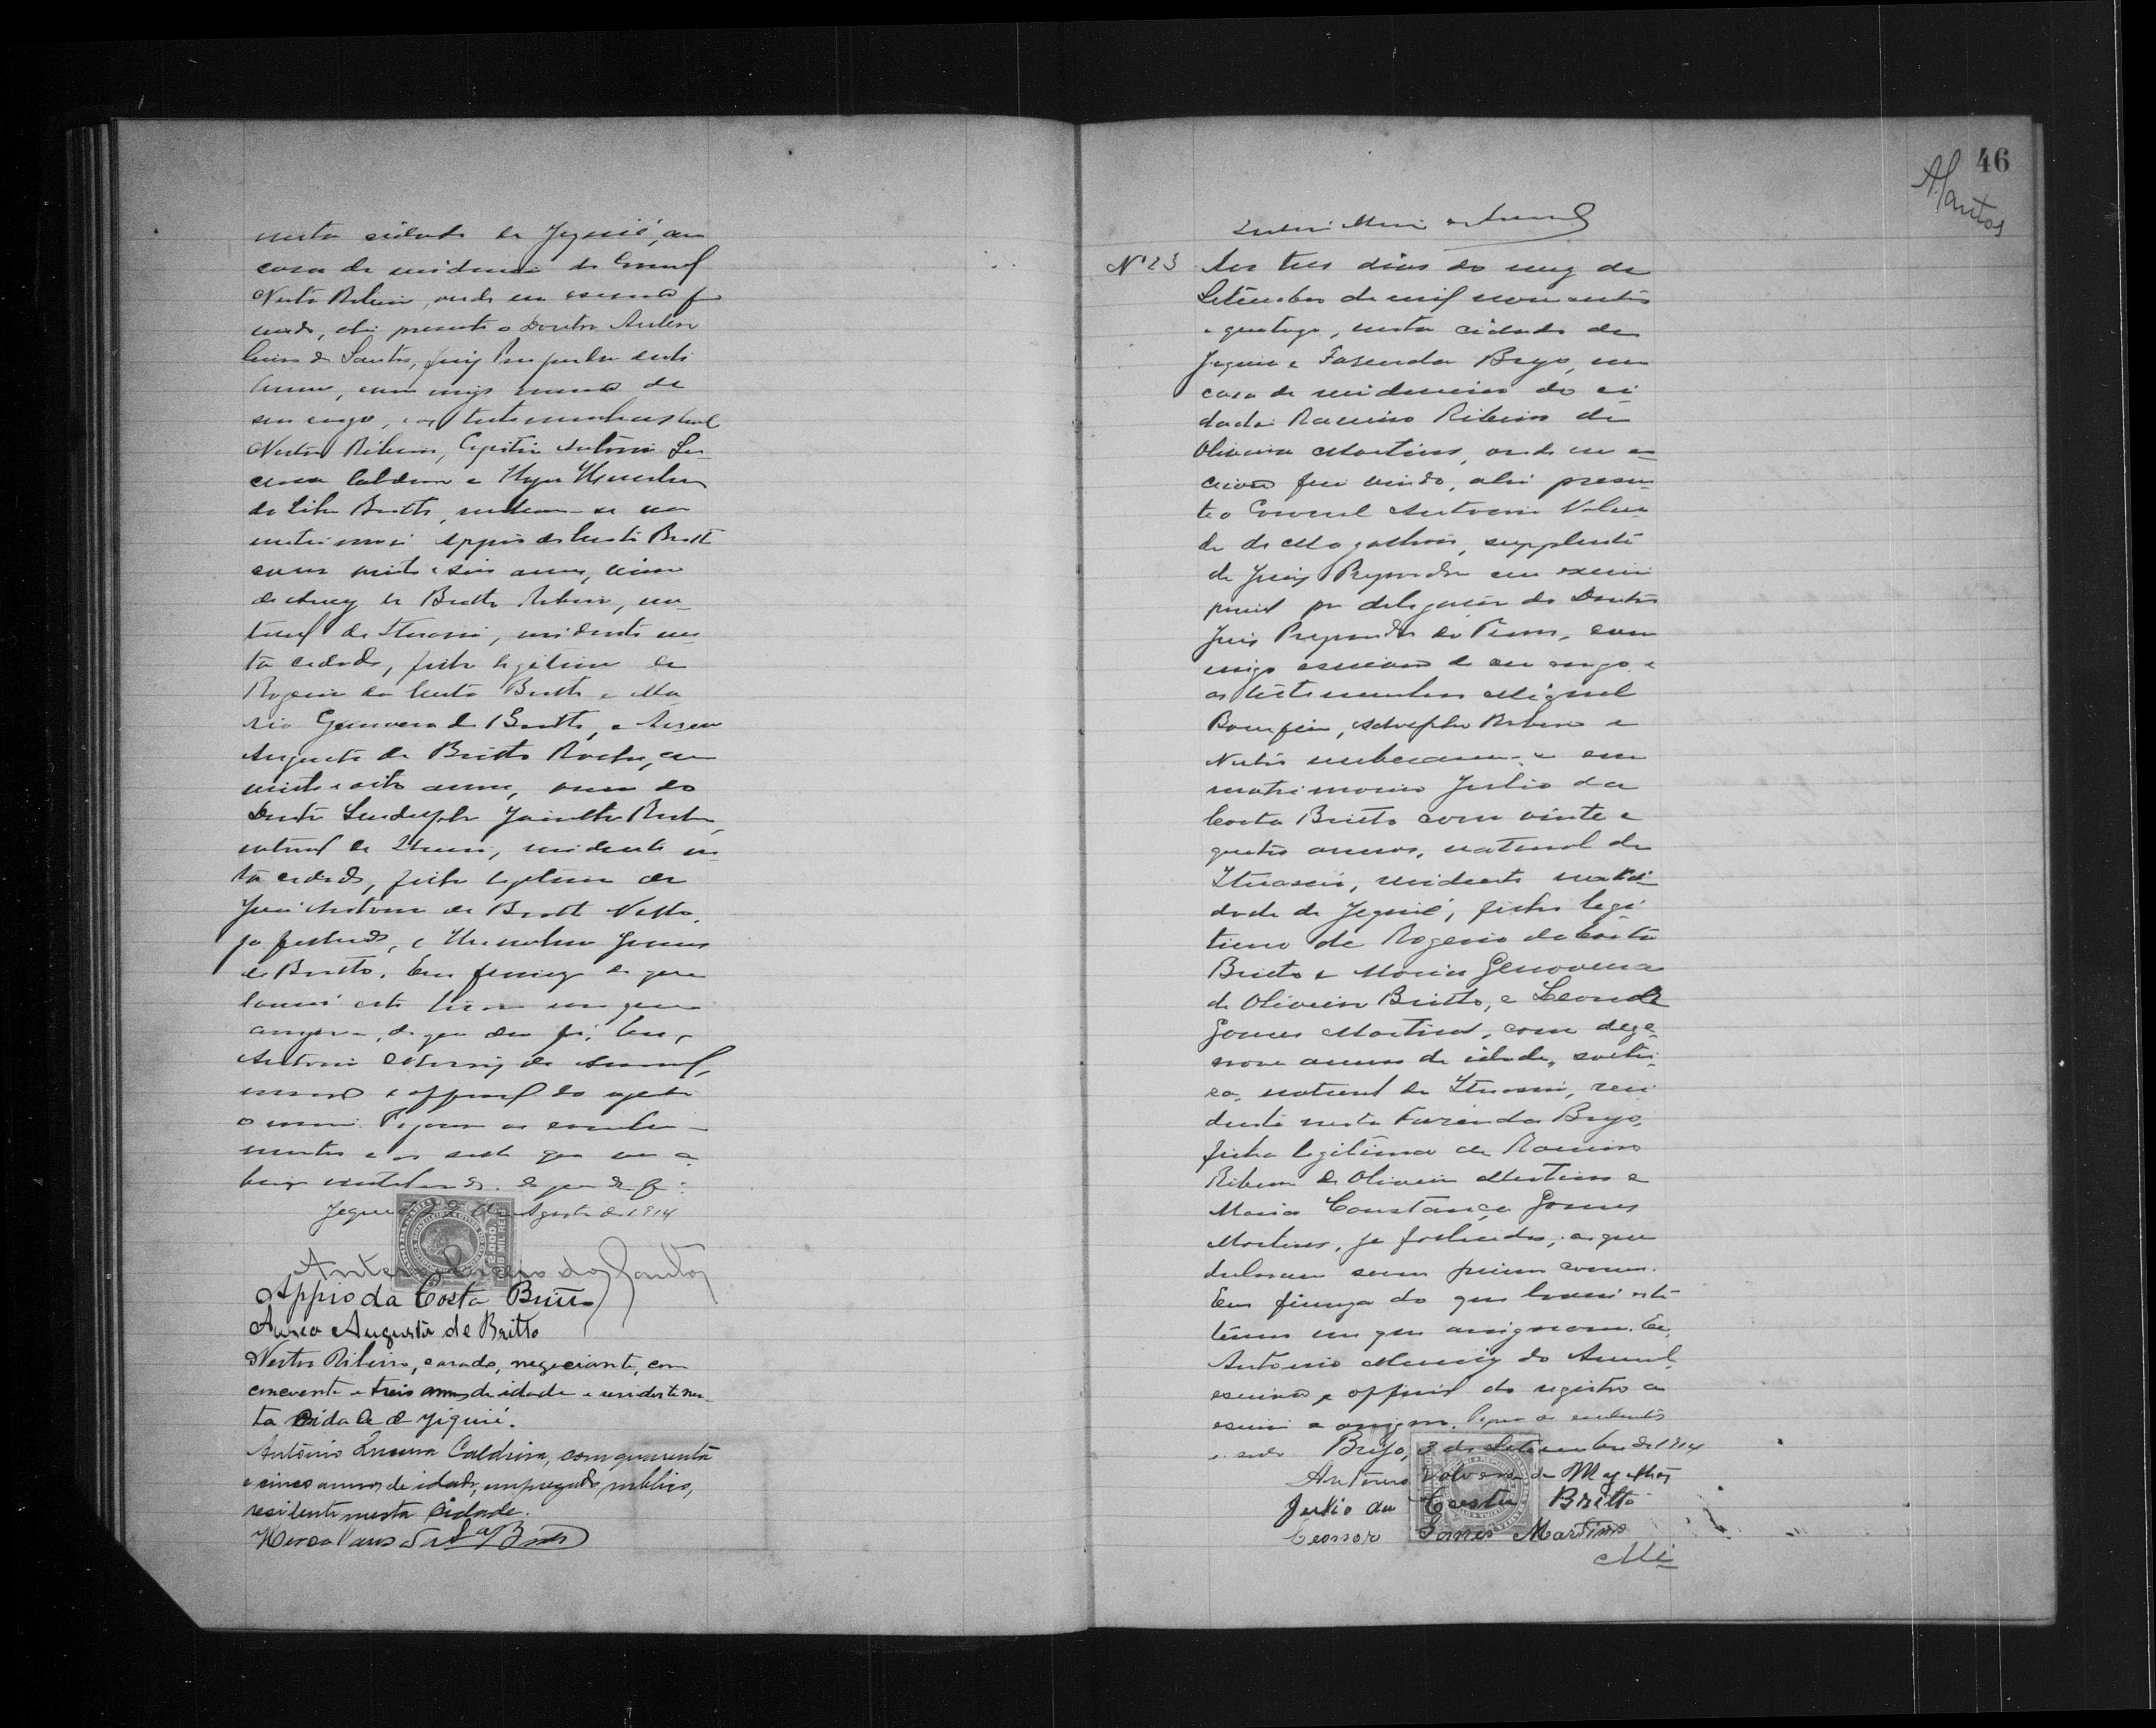 nesta cidade de Jequié, em
casa de residencia do Coronel
Nestor Ribeiro, onde eu escrivão fui
vindo, ahi presente o Doutor Antero
Cicero dos Santos, Juiz Preparador deste
Termo, commigo escrivão de
seu cargo, e as testemunhas Coronel
Nestor Ribeiro, Capitão Antonio Lu-
cena Caldeira e
da Silva Britto, receberam-se em
matrimonio Appio da Costa Britto
com vinte e seis annos, viuvo
de Aracy de Britto Ribeiro, na-
tural de Ituassú, residente nes-
ta cidade, filho legitimo de
Rogerio da Costa Britto e Ma-
ria Genoveva de Britto, e Aurea
Augusta de Britto Rocha, com
vinte e oito annos, viuva do
Doutor Lindolpho Jacintho Rocha,
natural de Ituassú, residente nes-
ta cidade, filha legitima de
José Antonio de Britto
já fallecido, e Gomes
de Britto. Em firmeza do que
lavrei este termo em que
assignam, do que dou fé. Eu,
Antonio do Amaral,
escrivão e official do registro
o escrevi. Pagaram os emolu-
mentos e os sellos que vão a-
baixo do que dou fé.
Jequié 22 de Agosto de 1914
Antero Cicero dos Santos
Appio da Costa Britto
Aurea Augusta de Britto
Nestor Ribeiro, casado, negociante, com
cincoenta e treis annos de idade e residente nes-
ta cidade de Jiquié.
Antônio Lucena Caldeira, com quarenta
e cinco annos de idade, empregado publico,
residente nesta Cidade.
da Sa Britto
46
ASantos
Nº 23 Aos tres dias do mez de
Setembro de mil novecentos
e quatorze, nesta cidade de
Jequié e Fazenda Brejo, em
casa de residencia do ci-
dadão Ramiro Ribeiro de
Oliveira Martins, onde eu es-
crivão fui vindo, ahi presen-
te o Coronel Antonio Valver-
de de Magalhães, supplente
de Juiz Preparador em exerci-
por delegação do Doutor
Juiz Preparador do Termo, com-
migo escrivão de seu cargo e
as testemunhas Miguel
Bomfim, Adolpho Ribeiro e
Nestor receberam-se em
matrimonio Julio da
Costa Britto com vinte e
quatro annos, natural de
Ituassú, residente na ci-
dade de Jequié, filho legi-
timo de Rogerio da Costa
Britto e Maria Genoveva
de Oliveira Britto, e Leonor
Gomes Martins, com deze-
nove annos de idade, soltei-
ra, natural de Ituassú, resi-
dente nesta Fazenda Brejo,
filha legitima de Ramiro
Ribeiro de Oliveira Martins e
Maria Constança Gomes
Martins, já fallecida; os que
declararam serem primos
Em firmeza do que lavrei este
termo em que assignam. Eu,
Antonio do Amaral,
escrivão e official do registro o
escrevi e assigno. Pagou os emolumentos
e sello Brejo, 3 de Setembro de 1914
Antonio Valverde de Magalhães
Julio da Costa Britto
Leonor Gomes Martins
Mi